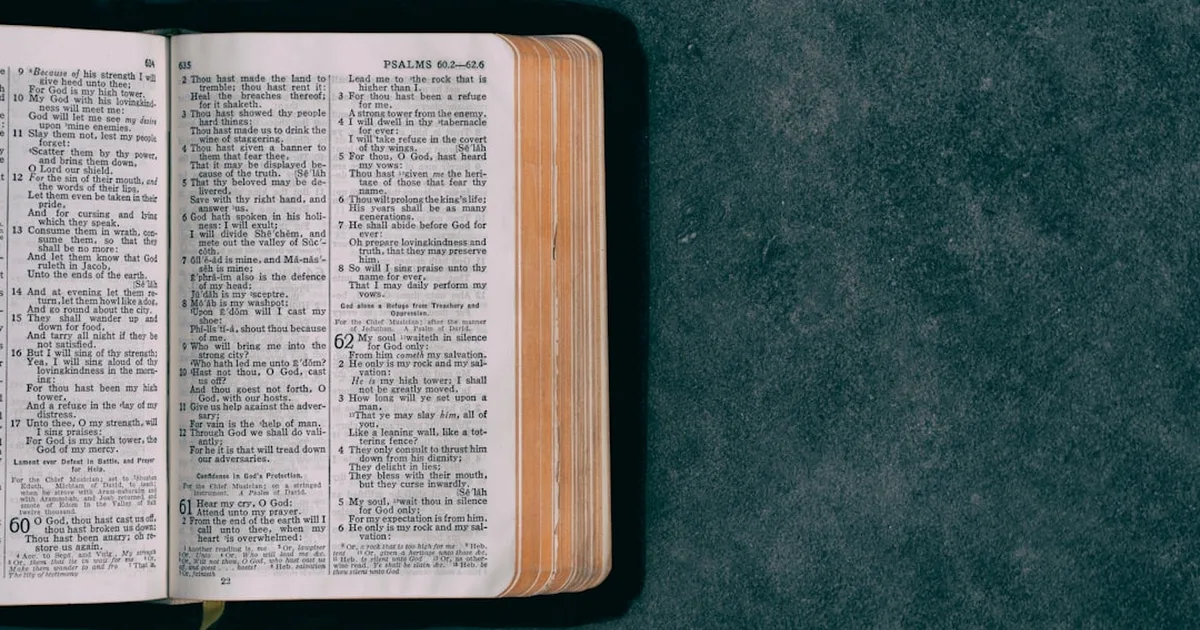 634
9 Because of his strength I will
give heed unto thee;
For God is my high tower.
10 My God with his lovingkind-
ness will meet me:
God will let me see my desire
upon mine enemies.
11 Slay them not, lest my people
forget:
Scatter them by thy power,
and bring them down,
O Lord our shield.
12 For the sin of their mouth, and
the words of their lips,
Let them even be taken in their
pride,
And for cursing and lying
which they speak.
13 Consume them in wrath, con-
sume them, so that they
shall be no more:
And let them know that God
ruleth in Jacob,
Unto the ends of the earth.
[Sē´lăh
14 And at evening let them re-
turn, let them howl like a dog,
And go round about the city.
15 They shall wander up and
down for food,
And tarry all night if they be
not satisfied.
16 But I will sing of thy strength;
Yea, I will sing aloud of thy
lovingkindness in the morn-
ing:
For thou hast been my high
tower,
And a refuge in the day of my
distress.
17 Unto thee, O my strength, will
I sing praises:
For God is my high tower, the
God of my mercy.
Lament over Defeat in Battle, and Prayer
for Help.
For the Chief Musician; set to
Eduth. Michtam of David, to teach;
when he strove with
with and Joab returned, and
smote of Edom in the Valley of Salt
twelve thousand.
60 O God, thou hast cast us off,
thou hast broken us down;
Thou hast been angry; oh re-
store us again.
635
PSALMS 60.2—62.6
2 Thou hast made the land to
tremble; thou hast rent it:
Heal the breaches thereof;
for it shaketh.
3 Thou hast showed thy people
hard things:
Thou hast made us to drink the
wine of staggering.
4 Thou hast given a banner to
them that fear thee,
That it may be displayed be-
cause of the truth. [Sē´lăh
5 That thy beloved may be de-
livered,
Save with thy right hand, and
answer us.
6 God hath spoken in his holi-
ness: I will exult;
I will divide Shē´chĕm, and
mete out the valley of Sŭc´-
cōth.
7 Gĭl´ē-ăd is mine, and Mă-năs´-
sĕh is mine;
Ē´phră-ĭm also is the defence
of my head;
Jū´dăh is my sceptre.
8 Mō´ăb is my washpot;
Upon Ē´dōm will I cast my
shoe:
Phĭ-lĭs´tĭ-ă, shout thou because
of me.
9 Who will bring me into the
strong city?
Who hath led me unto Ē´dōm?
10 Hast not thou, O God, cast
us off?
And thou goest not forth, O
God, with our hosts.
11 Give us help against the adver-
sary;
For vain is the help of man.
12 Through God we shall do vali-
antly;
For he it is that will tread down
our adversaries.
Confidence in God's Protection.
For the Chief Musician; on a stringed
instrument. A Psalm of David.
61 Hear my cry, O God;
Attend unto my prayer.
2 From the end of the earth will I
call unto thee, when my
heart is overwhelmed:
22
Lead me to the rock that is
higher than I.
3 For thou hast been a refuge
for me,
A strong tower from the enemy.
4 I will dwell in thy tabernacle
for ever:
I will take refuge in the covert
of thy wings. [Sē´lăh
5 For thou, O God, hast heard
my vows:
Thou hast given me the heri-
tage of those that fear thy
name.
6 Thou wilt prolong the king's life;
His years shall be as many
generations.
7 He shall abide before God for
ever:
Oh prepare lovingkindness and
truth, that they may preserve
him.
8 So will I sing praise unto thy
name for ever,
That I may daily perform my
vows.
God alone a Refuge from Treachery and
Oppression.
For the Chief Musician; after the manner
of Jeduthun. A Psalm of David.
62 My soul waiteth in silence
for God only:
From him cometh my salvation.
2 He only is my rock and my sal-
vation:
He is my high tower; I shall
not be greatly moved.
3 How long will ye set upon a
man,
That ye may slay him, all of
you,
Like a leaning wall, like a tot-
tering fence?
4 They only consult to thrust him
down from his dignity;
They delight in lies;
They bless with their mouth,
but they curse inwardly.
[Sē´lăh
5 My soul, wait thou in silence
for God only;
For my expectation is from him.
6 He only is my rock and my sal-
vation: